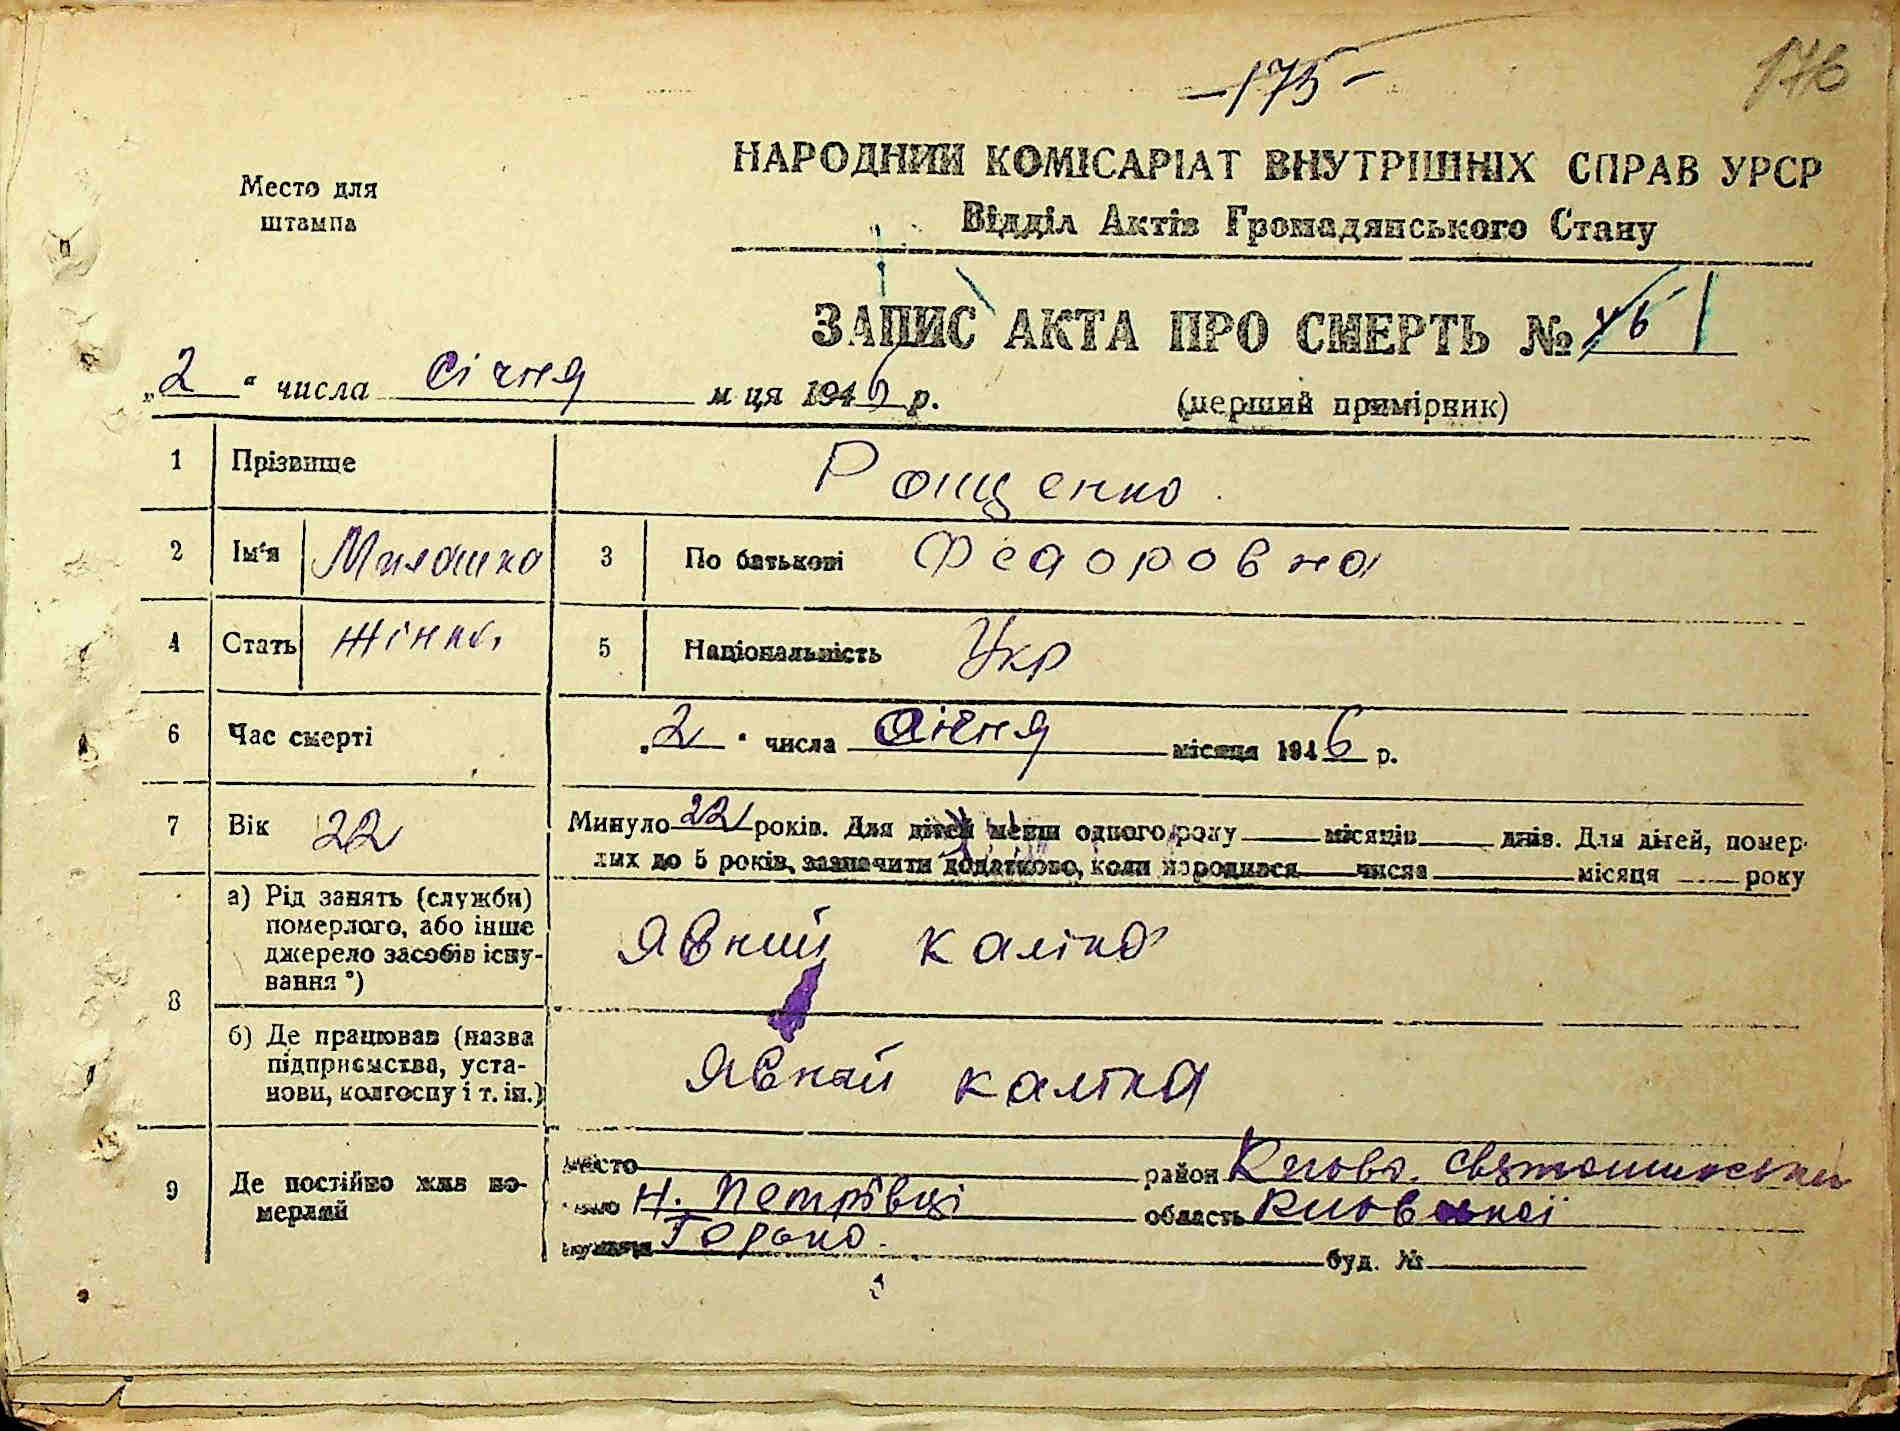 —175—
176
Место для
штампа
НАРОДНИЙ КОМІСАРІАТ ВНУТРІШНІХ СПРАВ УРСР
Відділ Актів Громадянського Стану
ЗАПИС АКТА ПРО СМЕРТЬ № 1
„2“ числа Січня м ця 1946 р.
(перший примірник)
1 Прізвище Рощенко
2 Ім'я Милашка 3 По батькові Федоровна
4 Стать жінка 5 Національність Укр
6 Час смерті „2“ числа січня місяця 1946 р.
7 Вік 22 Минуло 22 років. Для дітей менш одного року місяців днів. Для дітей, помер-
лих до 5 років, зазначити додатково, коли народився числа місяця року
8 а) Рід занять (служби)
померлого, або інше
джерело засобів існу-
вання *)
Явний каліка
б) Де працював (назва
підприємства, уста-
нови, колгоспу і т. ін.)
Явнай каліка
9 Де постійно жив по-
мерлий
місто район Києво. Святошинський
Н. Петрівці область Києвської
вулиця Горько. буд. №